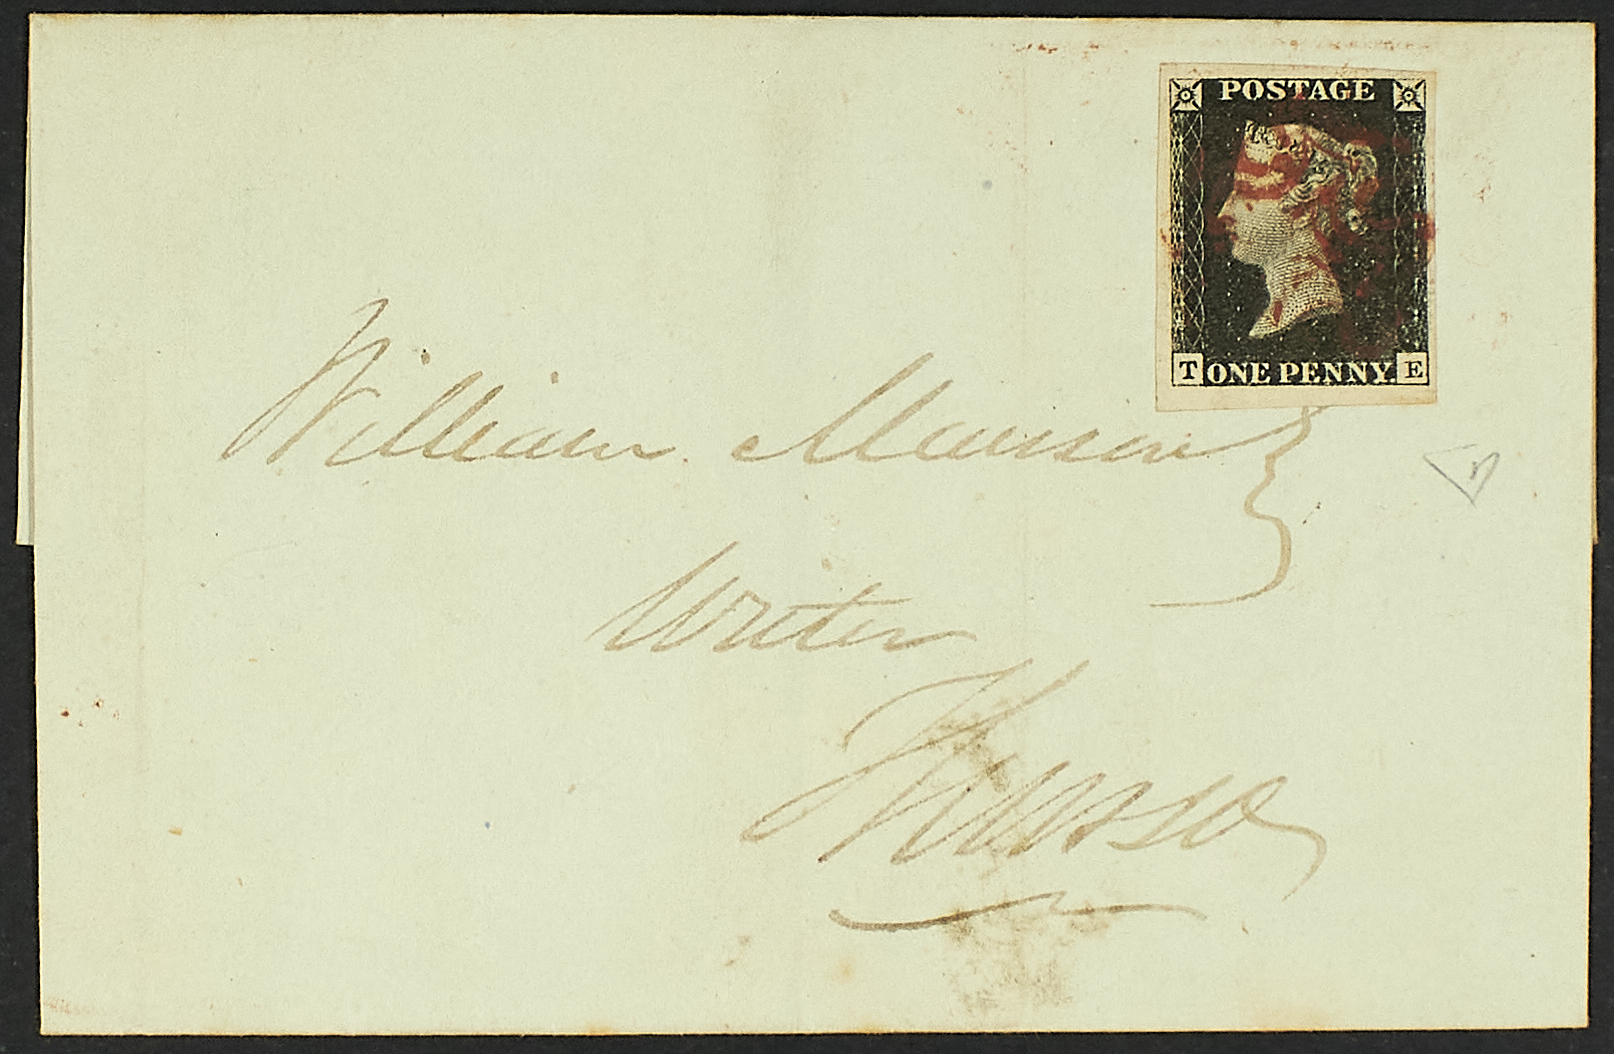 POSTAGE
T ONE PENNY. E
William Manson
Writer
Thurso